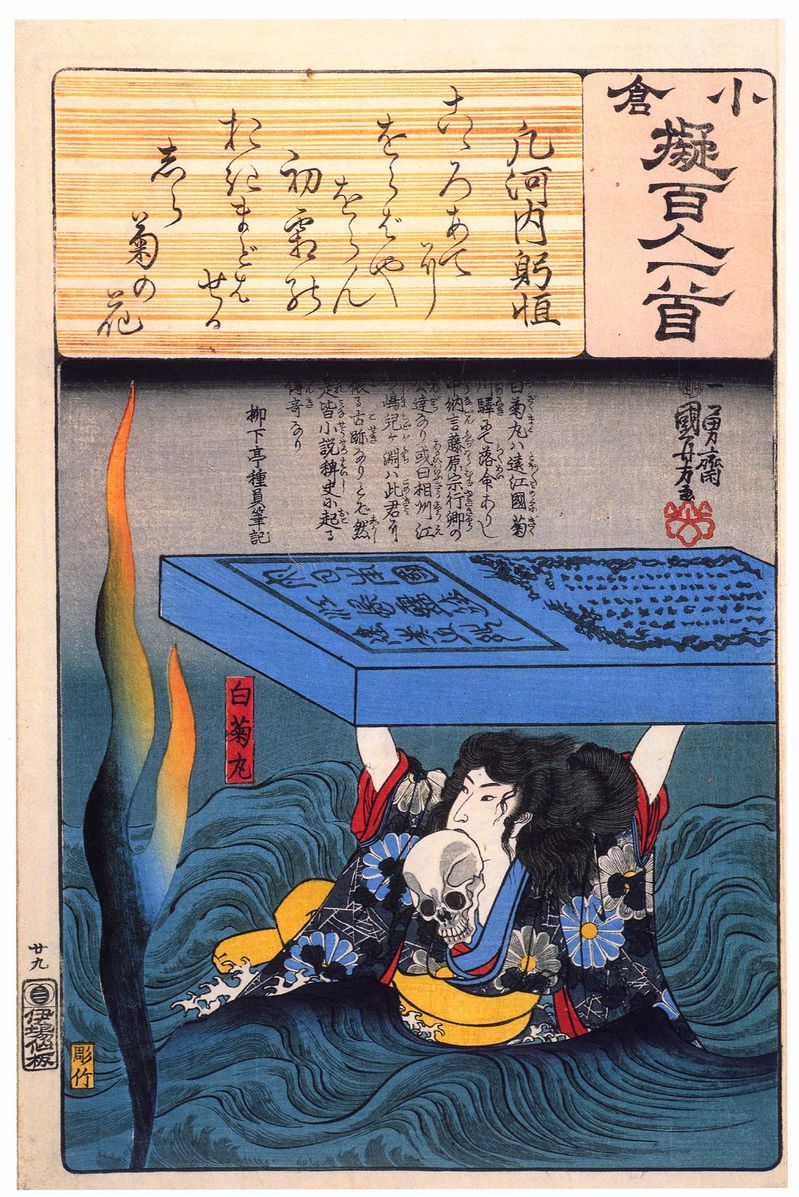 小倉
擬百人一首
凡河内躬恒
こゝろあてに
をらばや
をらん
初霜の
おきまどは
せる
しら
菊の
花
一勇齋
國芳画
白菊丸ハ遠江國菊
川驛にて落命ありし
中納言藤原宗行卿の
公達なり或曰相州江
の嶋児ヶ淵ハ此君に
依る古跡なりとぞ然
是皆小説稗史に起る
傳奇なり
柳下亭種員筆記
白菊丸
廿九
伊場仙板
彫竹